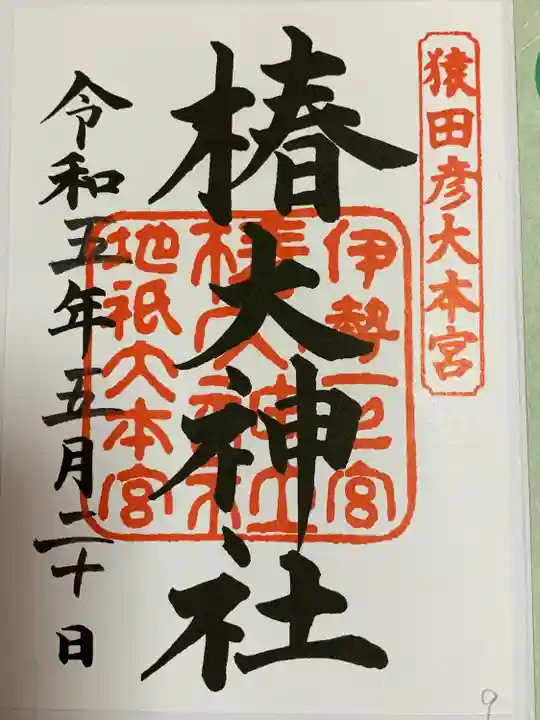 猿田彦大本宮
椿大神社
伊勢一之宮
椿大神社
地祇大本宮
令和五年五月二十日
9